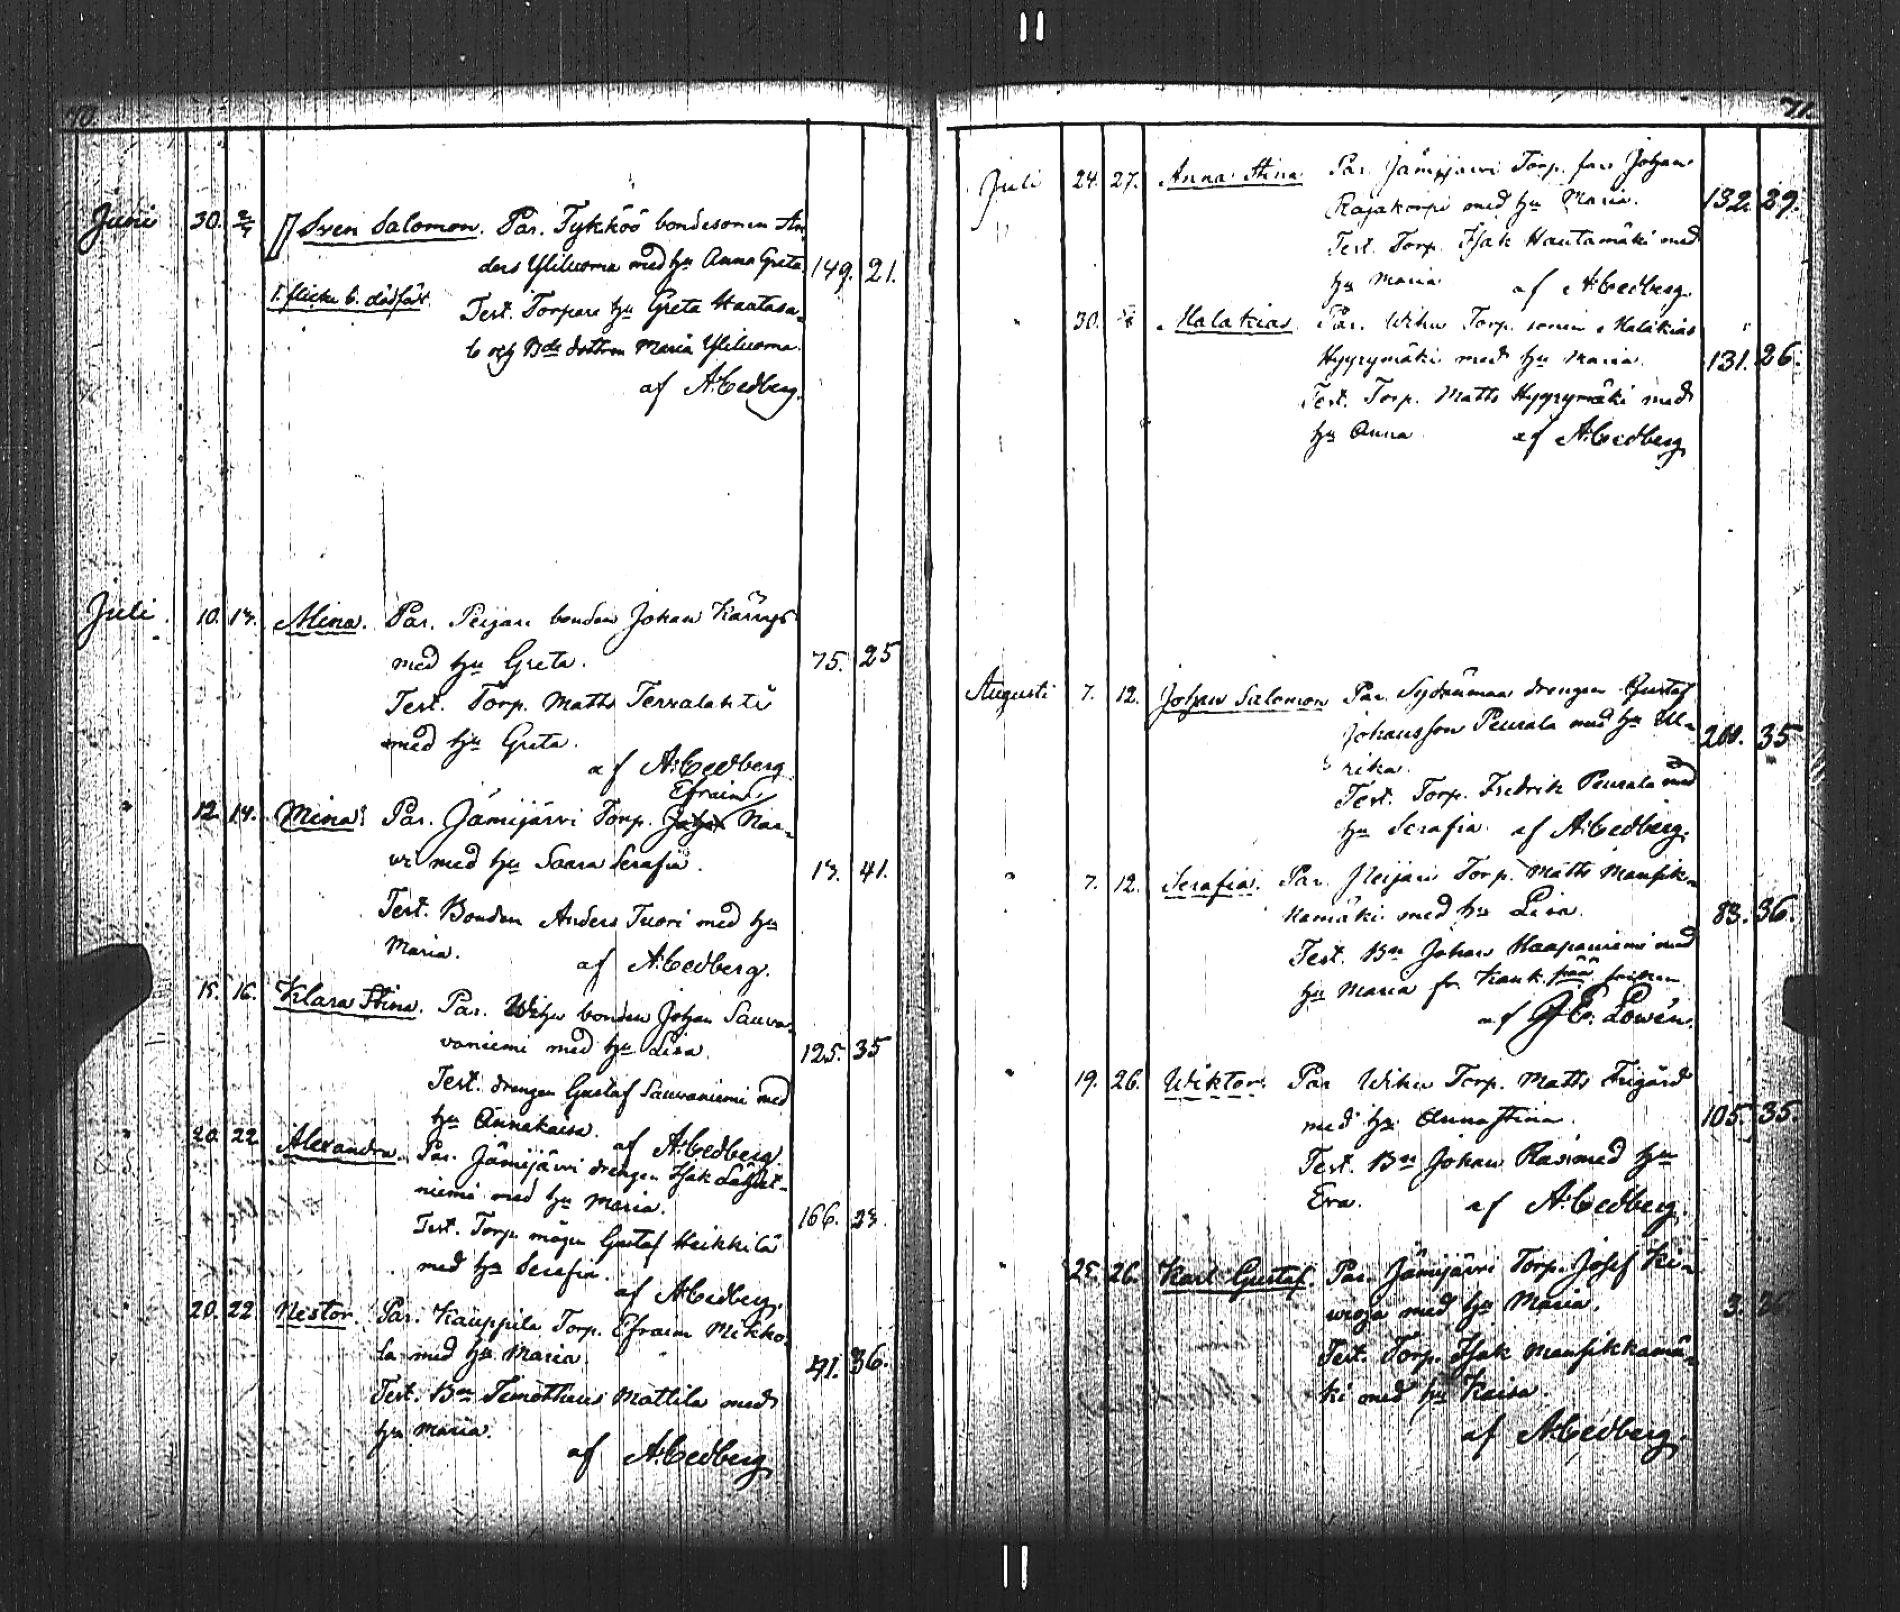 70
Juni 30. 2/7 Sven Salomon. Par. Tykköö bondesonen An-
ders Yliluoma med hu Anna Greta 149. 21.
1. flicka b. dödfödt. Test. Torpare hu Greta Haatasa-
lo och Bde dottren Maria Yliluoma.
af A. Cedberg.
Juli 10. 13. Mina. Par. Peijari bonden Johan
med hu Greta. 75. 25
Test. Torp. Matts
med hu Greta.
af A. Cedberg
Efraim
" 12. 14. Mina: Par. Jämijärvi Torp. Johan Nar-
vi med hu Saara Serafia. 13. 41.
Test. Bonden Anders Tuori med hu
Maria.
af A. Cedberg.
15. 16. Klara Stina. Par. Wihu bonden Johan Sauva-
vaniemi med hu Lisa. 125. 35
Test. drengen Gustaf Sauvaniemi med
hu Annakaisa.
af A. Cedberg
" 20. 22 Alexandra. Par. Jämijärvi drengen Isak
niemi med hu Maria. 166. 23.
Test. Torp. mågen Gustaf Heikkilä
med hu Serafia.
af A. Cedberg.
20. 22. Nestor. Par. Kauppila Torp. Efraim Mikko-
la med hu Maria. 41. 36.
Test. Bn Timotheus Mattila med
hu Maria.
af A. Cedberg
71.
Juli 24. 27. Anna Stina Par. Jämijärvi Torp. Johan
Rajakorpi med hu Maria. 132. 29.
Test. Torp. Isak Hautamäki med
hu Maria af A. Cedberg.
" 30. Malakias. Par. Wihu Torp. sonen Malakias
Hyyrymäki med hu Maria. 131. 26.
Test. Torp. Matts Hyyrymäki med
hu Anna af A. Cedberg
Augusti 7. 12. Johan Salomon Par. Sydänmaa drengen Gustaf
Johansson Peurala med hu Ul-
rika. 35
Test. Torp. Fredrik Peurala med
hu Serafia. af A. Cedberg.
" 7. 12. Serafia. Par. Peijari Torp. Matts Mansik-
kamäki med hu Lisa. 83. 36.
Test. Bn Johan Haapaniemi med
hu Maria fr. Kank. pää
af Löwén.
" 19. 26. Wiktor. Par Wihu Torp. Matts Frigård
med hu Anna Stina. 105. 35.
Test. Bn Johan Räsi med hu
Eva. af A. Cedberg.
" 25. 26. Karl Gustaf. Par. Jämijärvi Torp. Josef Ki-
wioja med hu Maria. 3.
Test. Torp. Isak Mansikkamä-
ki med hu Kaisa.
af A. Cedberg.